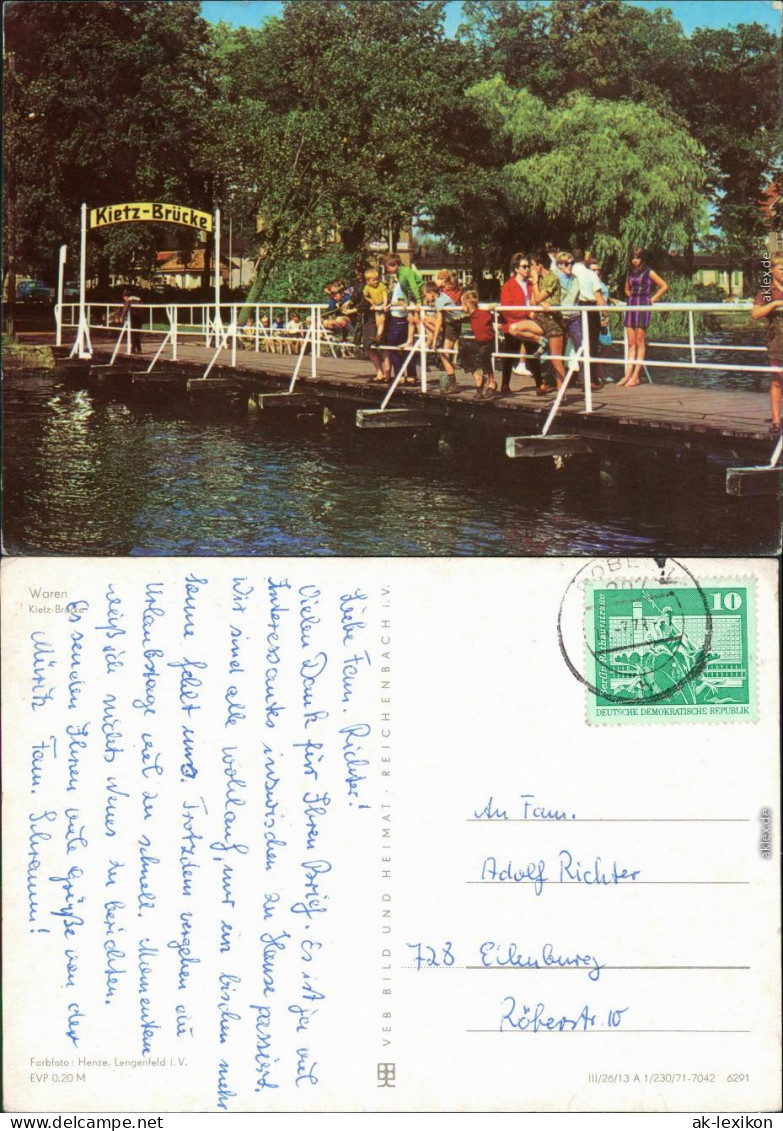 Kietz-Brücke
aklex.de
Waren
Kietz-Brücke
Liebe Fam. Richter!
Vielen Dank für Ihren Brief. Es ist ja viel
Interessantes inzwischen zu Hause passiert.
Wir sind alle wohlauf, nur ein bischen mehr
Sonne fehlt uns. Trotzdem vergehen die
Urlaubstage viel zu schnell. Momentan
weiß ich nichts Neues zu berichten.
Es senden Ihnen viele Grüße von der
Müritz Fam. Schramm!
Farbfoto: Henze, Lengenfeld i. V.
EVP 0.20 M
VEB BILD UND HEIMAT · REICHENBACH i. V.
10
DEUTSCHE DEMOKRATISCHE REPUBLIK
An Fam.
Adolf Richter
728 Eilenburg
Röberstr. 10
III/26/13 A 1/230/71-7042 6291
aklex.de
www.ak-ansichtskarten.de
ak-lexikon